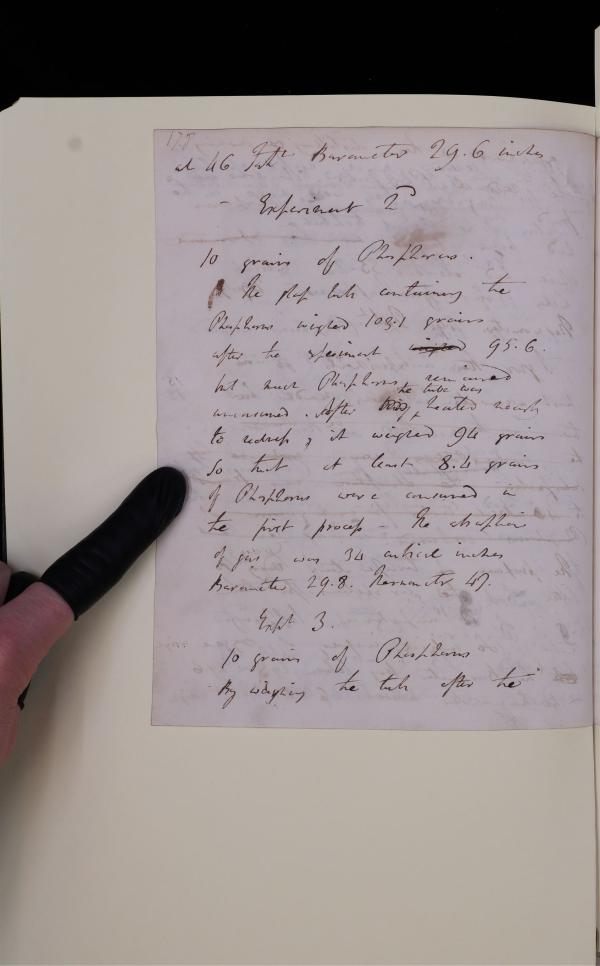 178
at 46 Fahᵗ Barometer 29.6 inches
- Experiment 2ᵈ
10 grains of Phosphorus.
The glass tube containing the
Phosphorus weighed 103.1 grains
after the experiment weighed 95.6.
but much Phosphorus remained
unconsumed. After the tube was heated nearly
to redness, it weighed 94 grains
So that at least 8.4 grains
of Phosphorus were consumed in
the first process - The absorption
of gas was 34 cubical inches
Barometer 29.8. Thermometer 47.
Expᵗ 3.
10 grains of Phosphorus
By weighing the tube after the